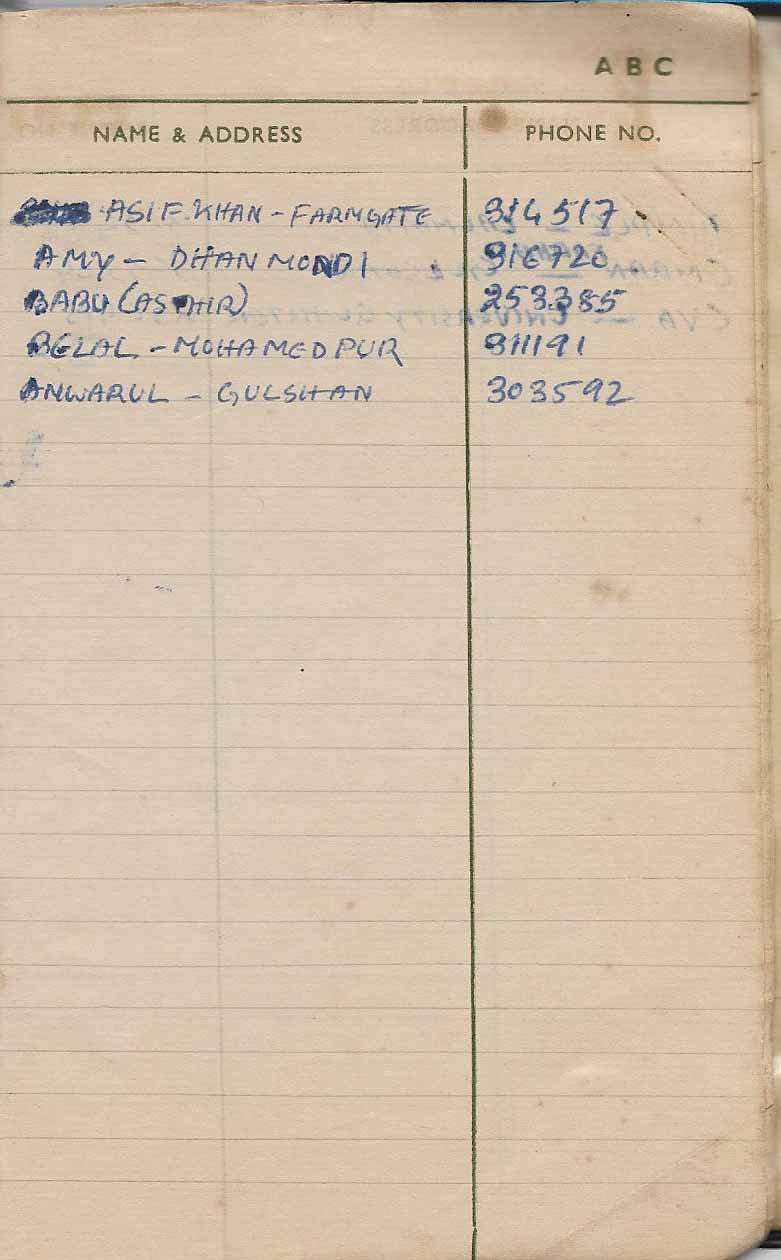 A B C
NAME & ADDRESS PHONE NO.
ASIF KHAN - FARMGATE 314517
AMY - DHANMONDI 316720
BABU (ASHIR) 253385
BELAL - MOHAMEDPUR 311191
ANWARUL - GULSHAN 303592